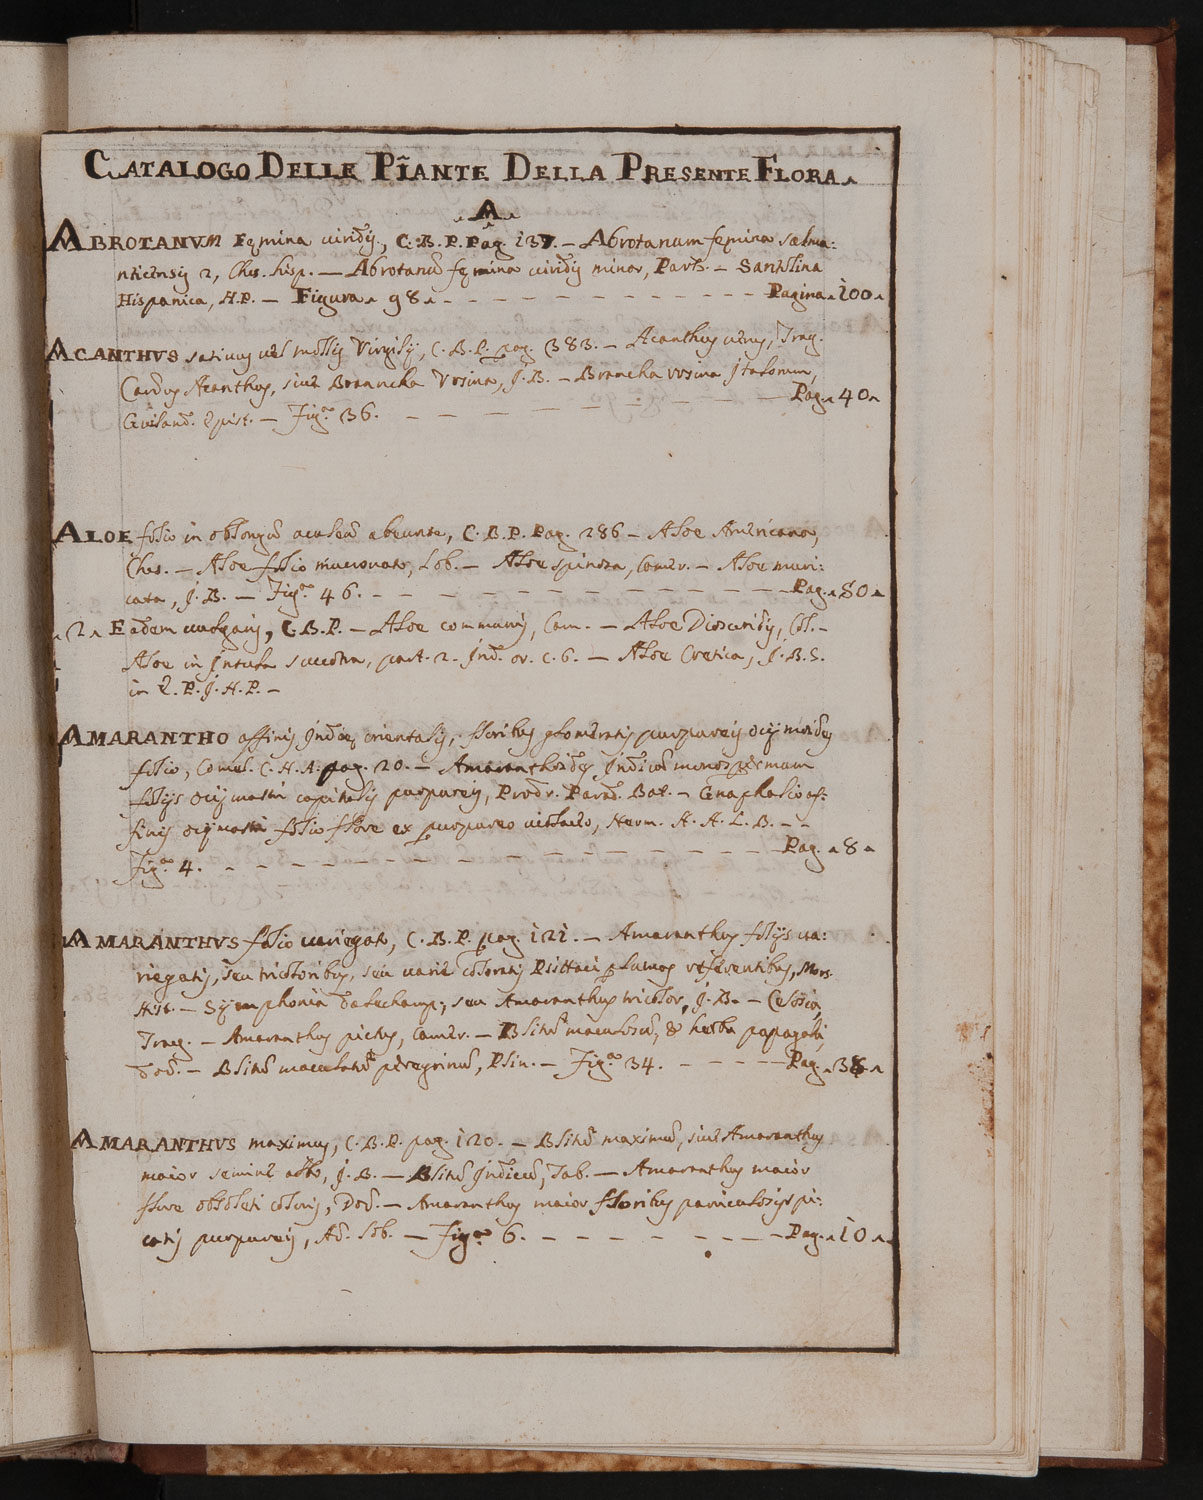 CATALOGO DELLE PIANTE DELLA PRESENTE FLORA
A
ABROTANVM Fęmina viridis, C. B. P. Pag. 137. – Abrotanum fęmina salma:
nticensis 2, Clus. hisp. — Abrotanũ fęmina viridis minor, Park. – Santolina
Hispanica, H.P. – Figura 98 - - - - - - - - - - - - - - Pagina 100
ACANTHVS sativus vel mollis Virgilij, C. B. P. pag. 383. – Acanthus verus, Trag.
Carduus Acanthus, sive Branncha Vrsina, J.B. – Brancha vrsina Jtalorum,
Guiland. Epist. – Figª. 36. - - - - - - - - - Pag. 40
ALOE folio in oblongũ aculeũ abeunte, C. B. P. Pag. 286 – Aloe Americana,
Clus. – Aloe folio mucronato, Lob. – Aloe spinosa, Camer. – Aloe muri:
cata, J. B. – Figª. 46. - - - - - - - - - - - - - - Pag. 80
2 Eadem vulgaris, C. B. P. – Aloe communis, Cam. – Aloe Dioscoridis, Col. –
Aloe in Jnsula succotra, part. 2. Jnd. or. c. 6. – Aloe Cretica, J. B. S.
in E. P. J. H. P. –
AMARANTHO affinis Jndię orientalis, floribus glomeratis purpureis ocijmoides
folio, Comel. C. H. A. pag. 20. – Amaranthoides Jndicũ monospermum
folijs Ocijmastri capitulis purpureis, Prodr. Parad. Bat. – Gnaphalio af:
finis ocijmastri folio flore ex purpureo violaceo, Herm. H. A. L. B. – –
Figª. 4. - - - - - - - - - - - - - - Pag. 8
AMARANTHVS folio variegato, C. B. P. pag. 121. – Amaranthus folijs va:
riegatis, seu tricoloribus, seu varie coloratis Psittaci plumas referentibus, Mors.
Hist. – Sijmphonia Dalechamp; seu Amaranthus tricolor, J. B. – Celosia,
Trag. – Amaranthus pictus, Camer. – Blitũ maculosũ, & herba papagalli,
Dod. – Blitũ maculatũ peregrinũ, Plin. – Figª. 34. - - - - - Pag. 38
AMARANTHVS maximus, C. B. P. pag. 120. – Blitũ maximũ, sive Amaranthus
maior semine albo, J. B. – Blitũ Jndicũ, Tab. – Amaranthus maior
flore obsoleti coloris, Dod. – Amaranthus maior floribus paniculosis spi:
catis purpureis, Ad. Lob. – Figª. 6. - - - - - - - - Pag. 10